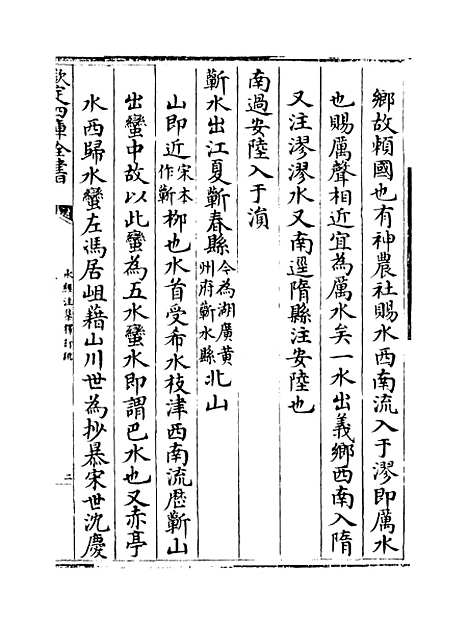 鄉故頼國也有神農社賜水西南流入于漻即厲水
也賜厲聲相近宜為厲水矣一水出義鄉西南入隋
又注漻漻水又南逕隋縣注安陸也
南過安陸入于溳
蘄水出江夏蘄春縣今為湖廣黄州府蘄水縣北山
山即近宋本作蘄柳也水首受希水枝津西南流厯蘄山
出蠻中故以此蠻為五水蠻水即謂巴水也又赤亭
水西歸水蠻左馮居岨藉山川世為抄暴宋世沈慶
欽定四庫全書
水經注集釋訂訛
二